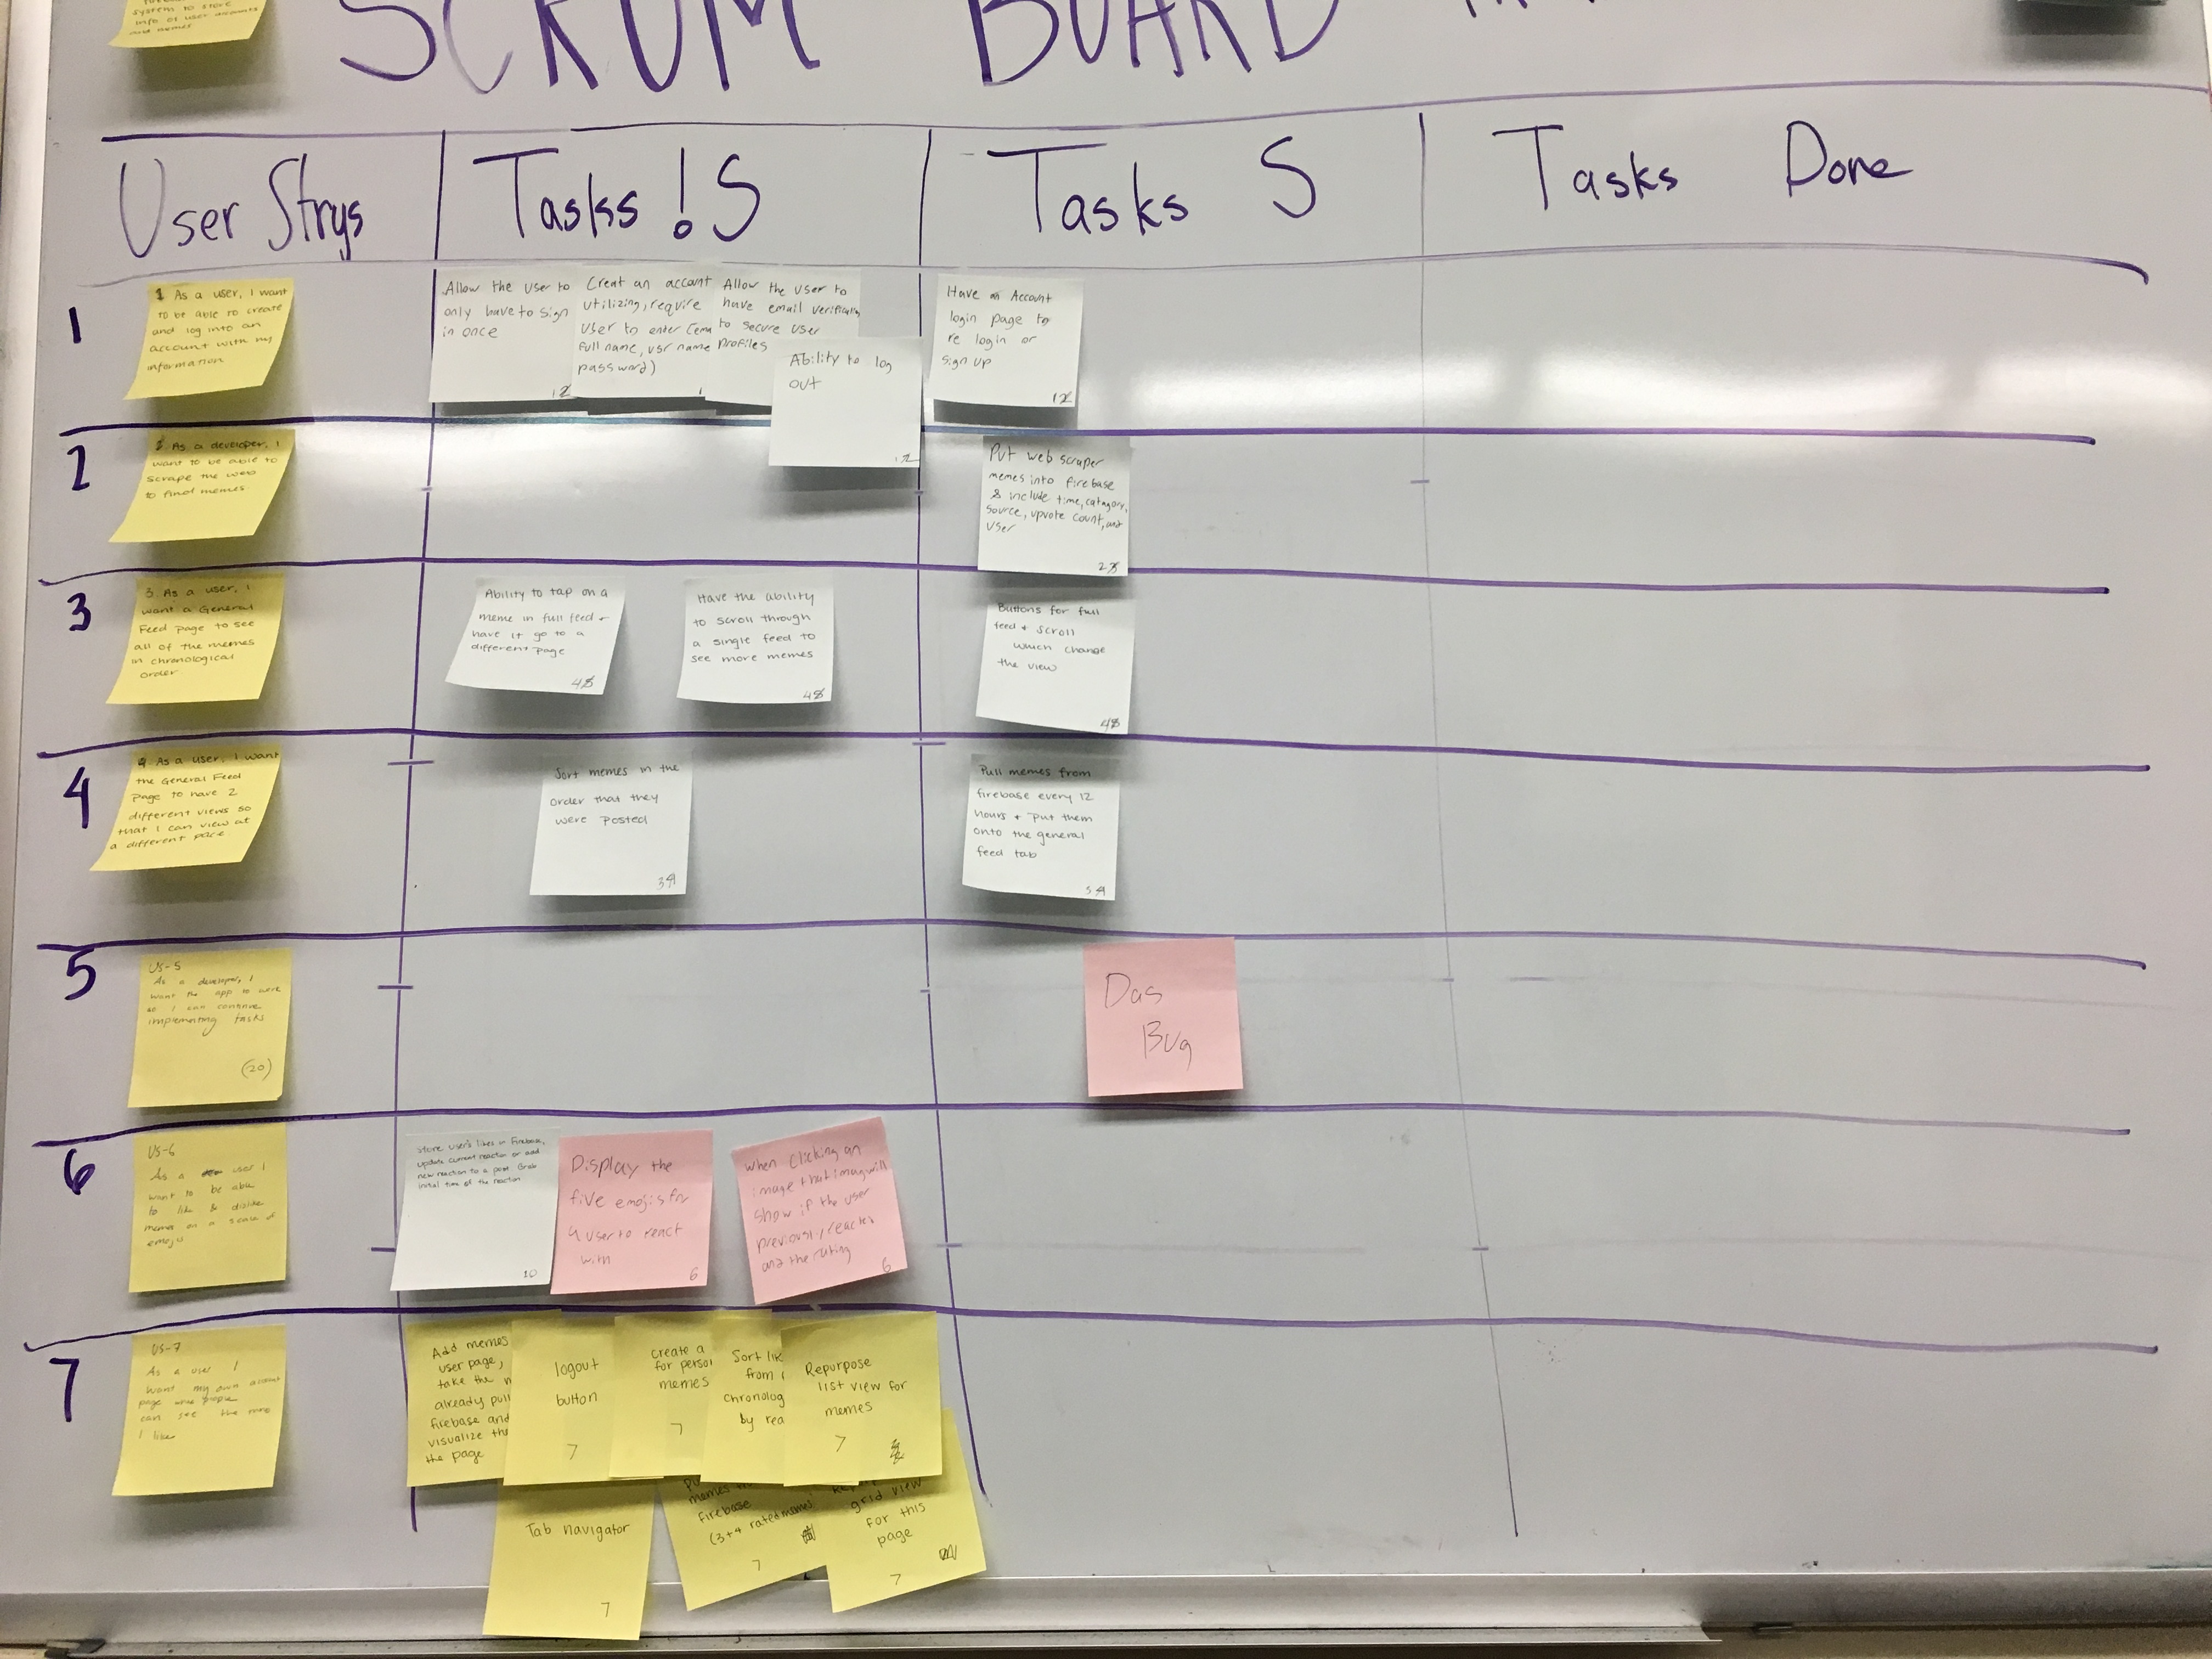 system to store
info of user accounts
and memes
SCRUM BOARD
User Strys
Taskss !S
Tasks S
Tasks Done
1
1 As a user, I want
to be able to create
and log into an
account with my
information
Allow the user to
only have to sign
in once
12
Creat an account
utilizing, require
user to enter (ema
full name, usr name
password)
1
Allow the user to
have email verification
to secure user
profiles
Ability to log
out
12
Have an Account
login page to
re login or
sign up
12
2
2 As a developer, I
want to be able to
scrape the web
to find memes
Put web scraper
memes into firebase
& include time, catagory,
source, upvote count, and
user
2
3
3. As a user, I
want a General
Feed page to see
all of the memes
in chronological
order
Ability to tap on a
meme in full feed +
have it go to a
different page
4
Have the ability
to scroll through
a single feed to
see more memes
4
Buttons for full
feed + scroll
which change
the view
4
4
4 As a user, I want
the General Feed
Page to have 2
different views so
that I can view at
a different pace
Sort memes in the
order that they
were posted
3
Pull memes from
firebase every 12
hours + put them
onto the general
feed tab
3
5
US-5
As a developer, I
want the app to work
so I can continue
implementing tasks
(20)
Das
Bug
6
US-6
As a user I
want to be able
to like & dislike
memes on a scale of
emoji
Store user's likes in Firebase,
update current reaction or add
new reaction to a post. Grab
initial time of the reaction
10
Display the
five emojis for
a user to react
with
6
when clicking an
image that imag will
show if the user
previously reacted
and the rating
6
7
US-7
As a user I
want my own account
page where people
can see the memes
I like
Add memes
user page,
take the m
already pull
firebase and
visualize the
the page
logout
button
7
create a
for person
memes
7
Sort lik
from
chronolog
by rea
Repurpose
list view for
memes
7
Tab navigator
7
memes
firebase
(3+4 rated memes
7
grid view
for this
page
7